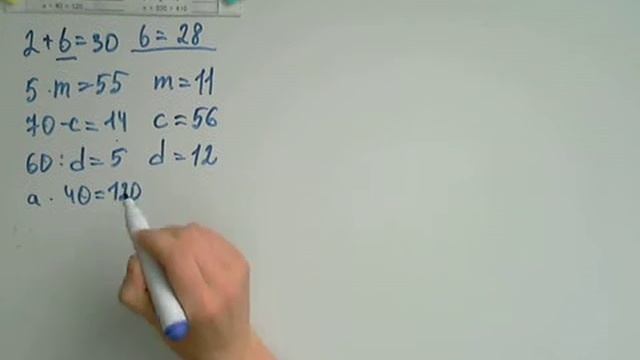 2+6=30 6=28
5·m=55 m=11
70-c=14 c=56
60:d=5 d=12
a·40=120